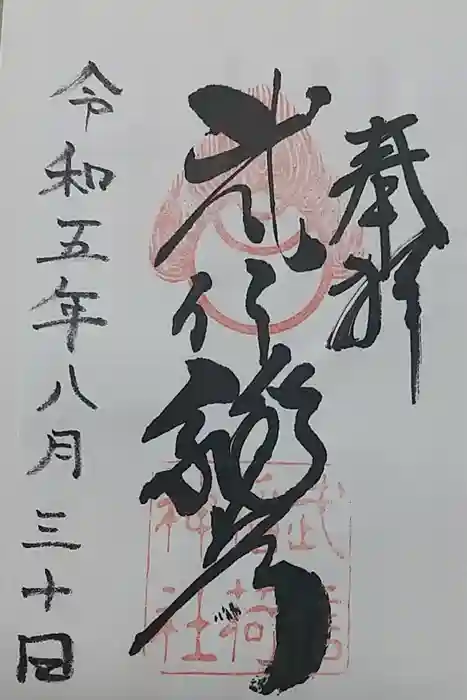 奉拝
武信稲荷
武信
稲荷
神社
令和五年八月三十日